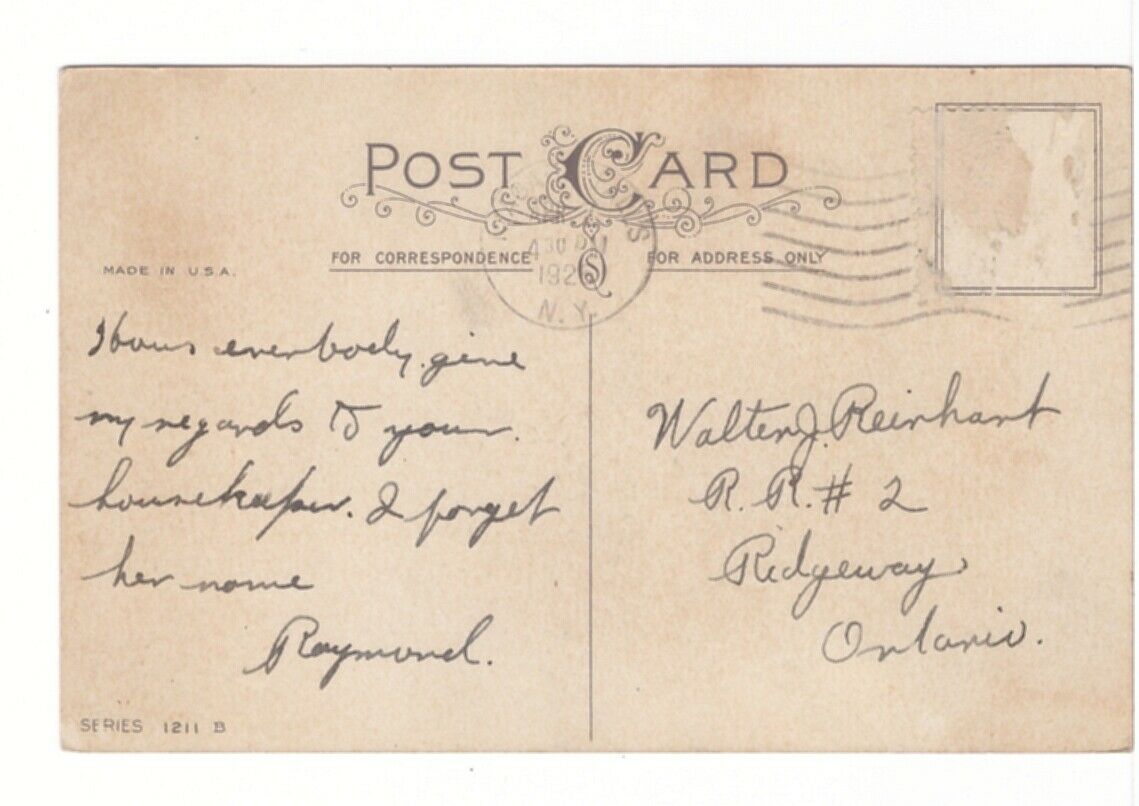 POST CARD
FOR CORRESPONDENCE
FOR ADDRESS ONLY
MADE IN U.S.A.
4 30 PM
192
N.Y.
everbody. give
my regards to your.
housekeeper. I forget
her name
Raymond.
Walter J. Reinhart
R. R. # 2
Ridgeway
Ontario.
SERIES 1211 B